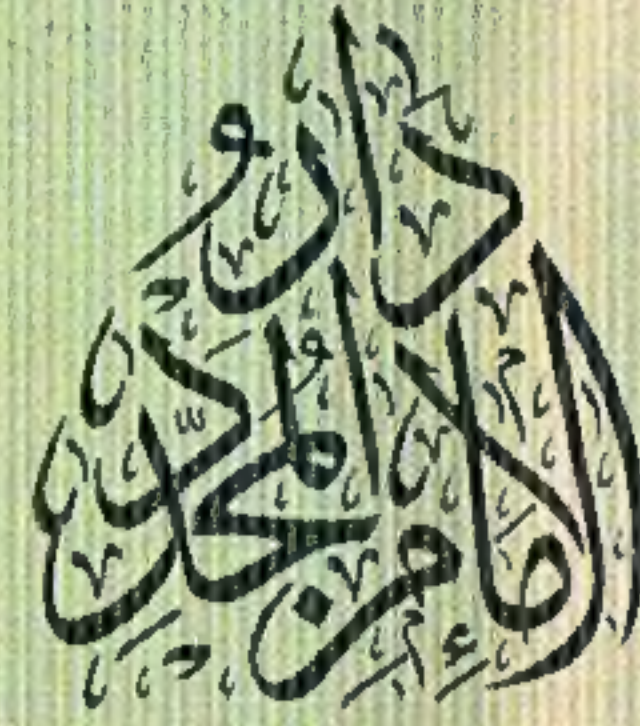 دارُ
الإمامِ المجدِّدِ